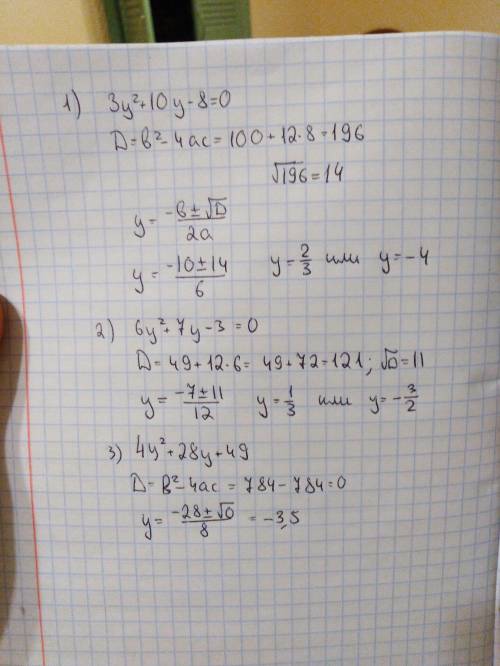 1) 3y²+10y-8=0
D=b²-4ac=100+12·8=196
√196=14
y=(-b±√D)/2a
y=(-10±14)/6 y=2/3 или y=-4
2) 6y²+7y-3=0
D=49+12·6=49+72=121; √D=11
y=(-7±11)/12 y=1/3 или y=-3/2
3) 4y²+28y+49
D=b²-4ac=784-784=0
y=(-28±√0)/8=-3,5